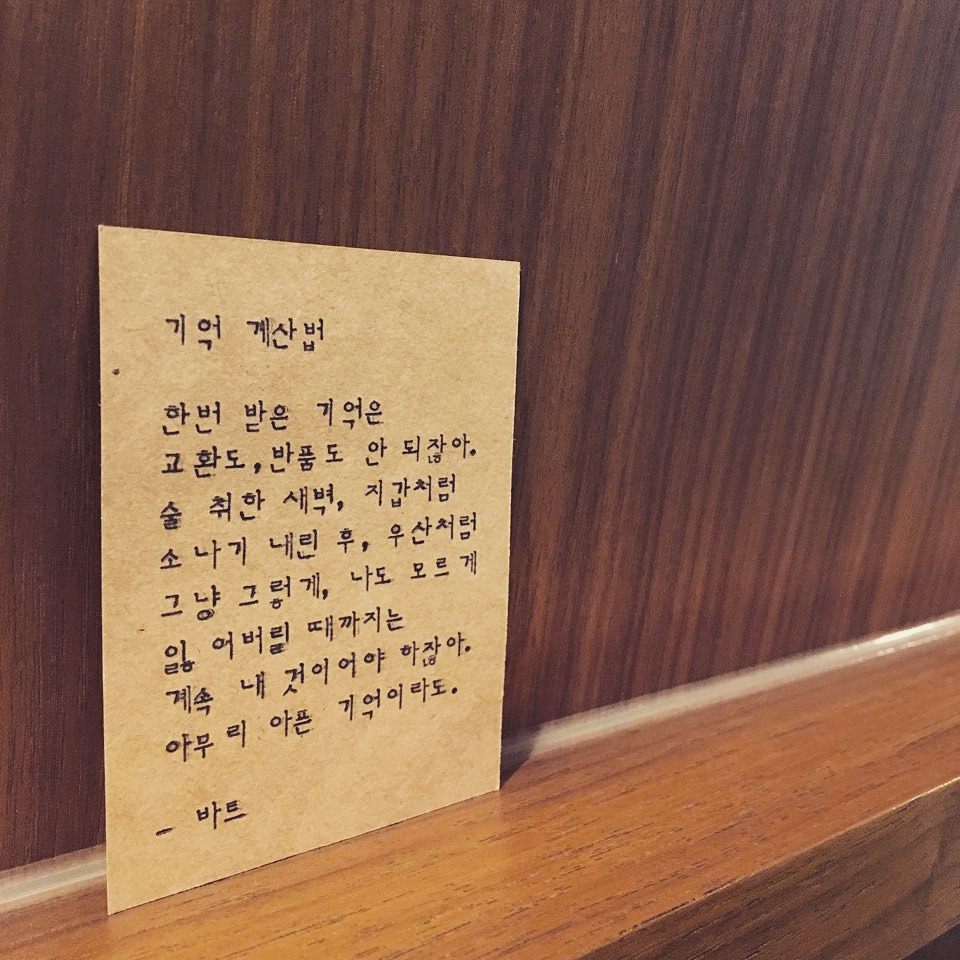 기억 계산법
한번 받은 기억은
교환도, 반품도 안 되잖아.
술 취한 새벽, 지갑처럼
소나기 내린 후, 우산처럼
그냥 그렇게, 나도 모르게
잃어버릴 때까지는
계속 내 것이어야 하잖아.
아무리 아픈 기억이라도.
_ 바트